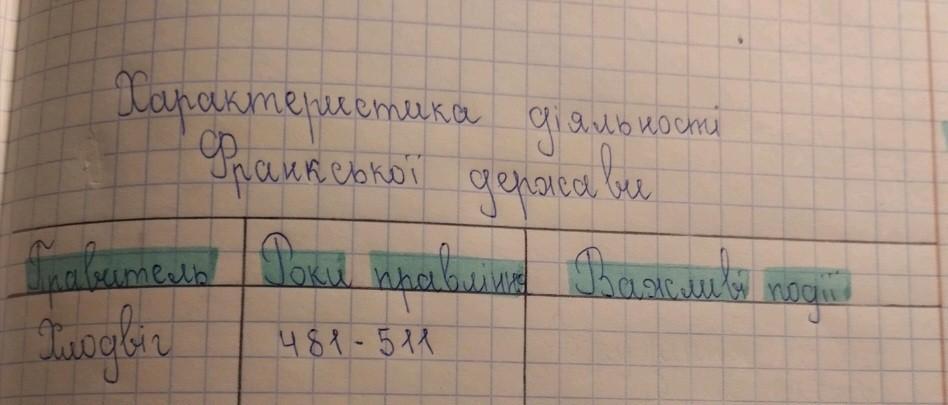 Характеристика діяльності
Франкської держави
Правитель Роки правління Важливі події
Хлодвіг 481-511